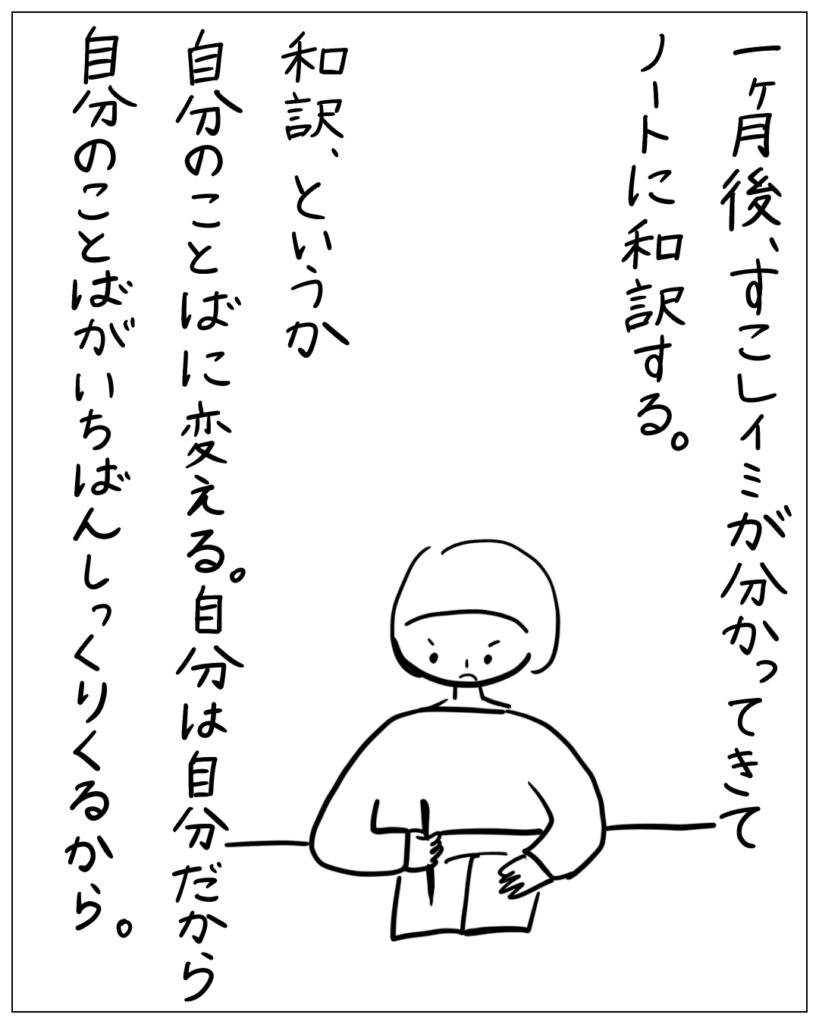 一ヶ月後、すこしイミが分かってきて
ノートに和訳する。
和訳、というか
自分のことばに変える。自分は自分だから
自分のことばがいちばんしっくりくるから。